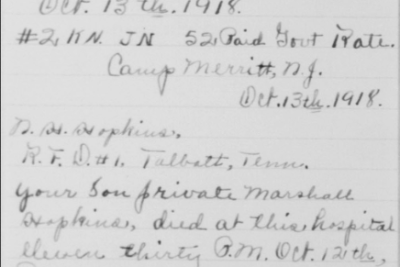 Oct. 13th. 1918.
#2 KN. JN 52 Paid Govt Rate.
Camp Merritt, N.J.
Oct. 13th. 1918.
D. H. Hopkins,
R. F. D. #1. Talbott, Tenn.
Your Son private Marshall
Hopkins, died at this hospital
eleven thirty P.M. Oct. 12th,